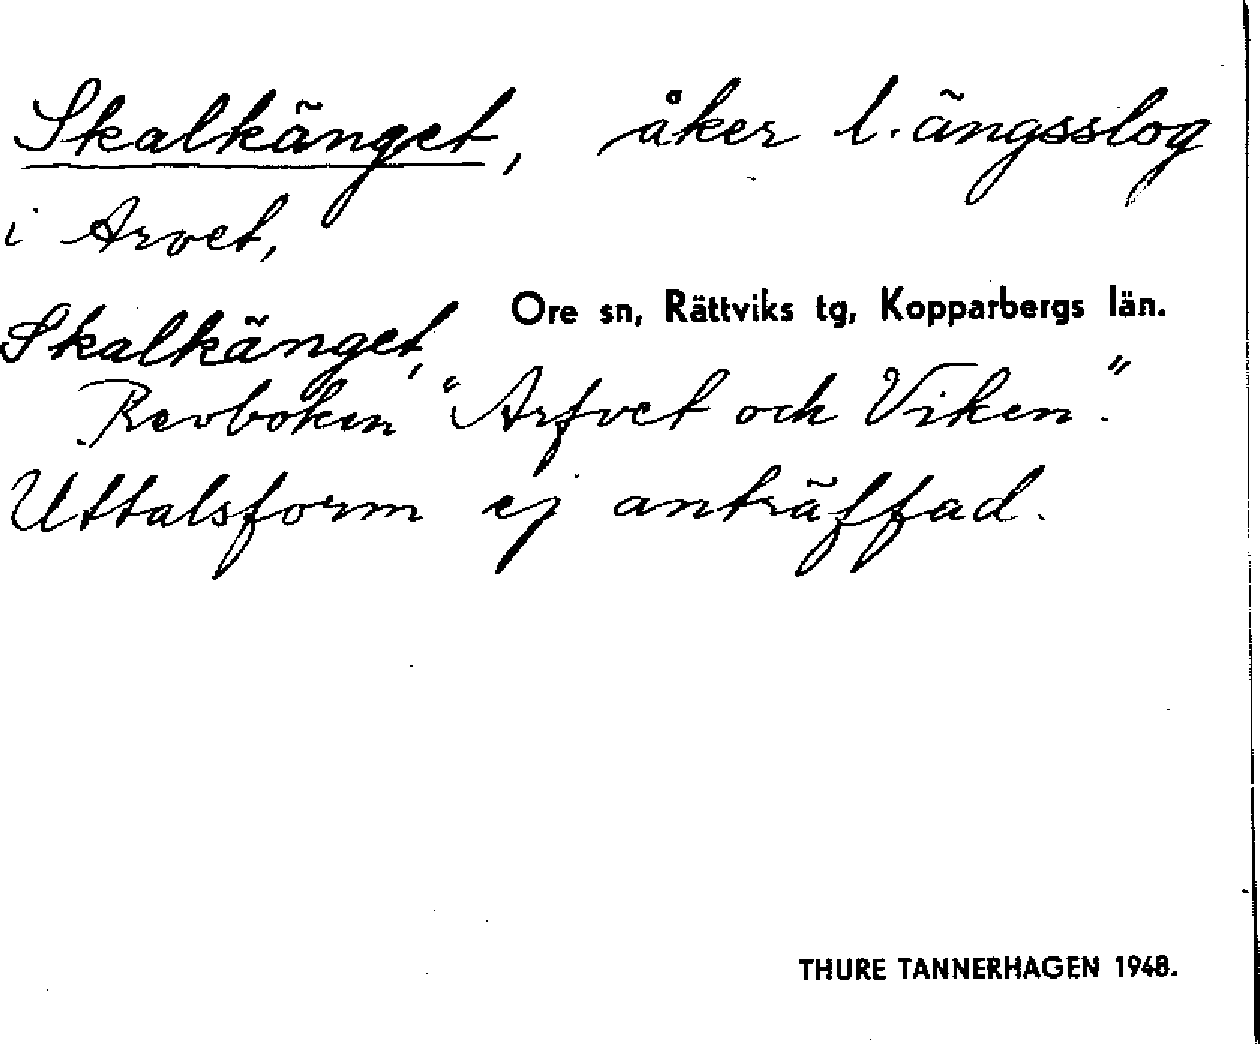 Skalkänget, åker l. ängsslog
i Arvet,
Ore sn, Rättviks tg, Kopparbergs län.
Skalkänget,
Revboken "Arfvet och Viken."
Uttalsform ej anträffad.
THURE TANNERHAGEN 1948.